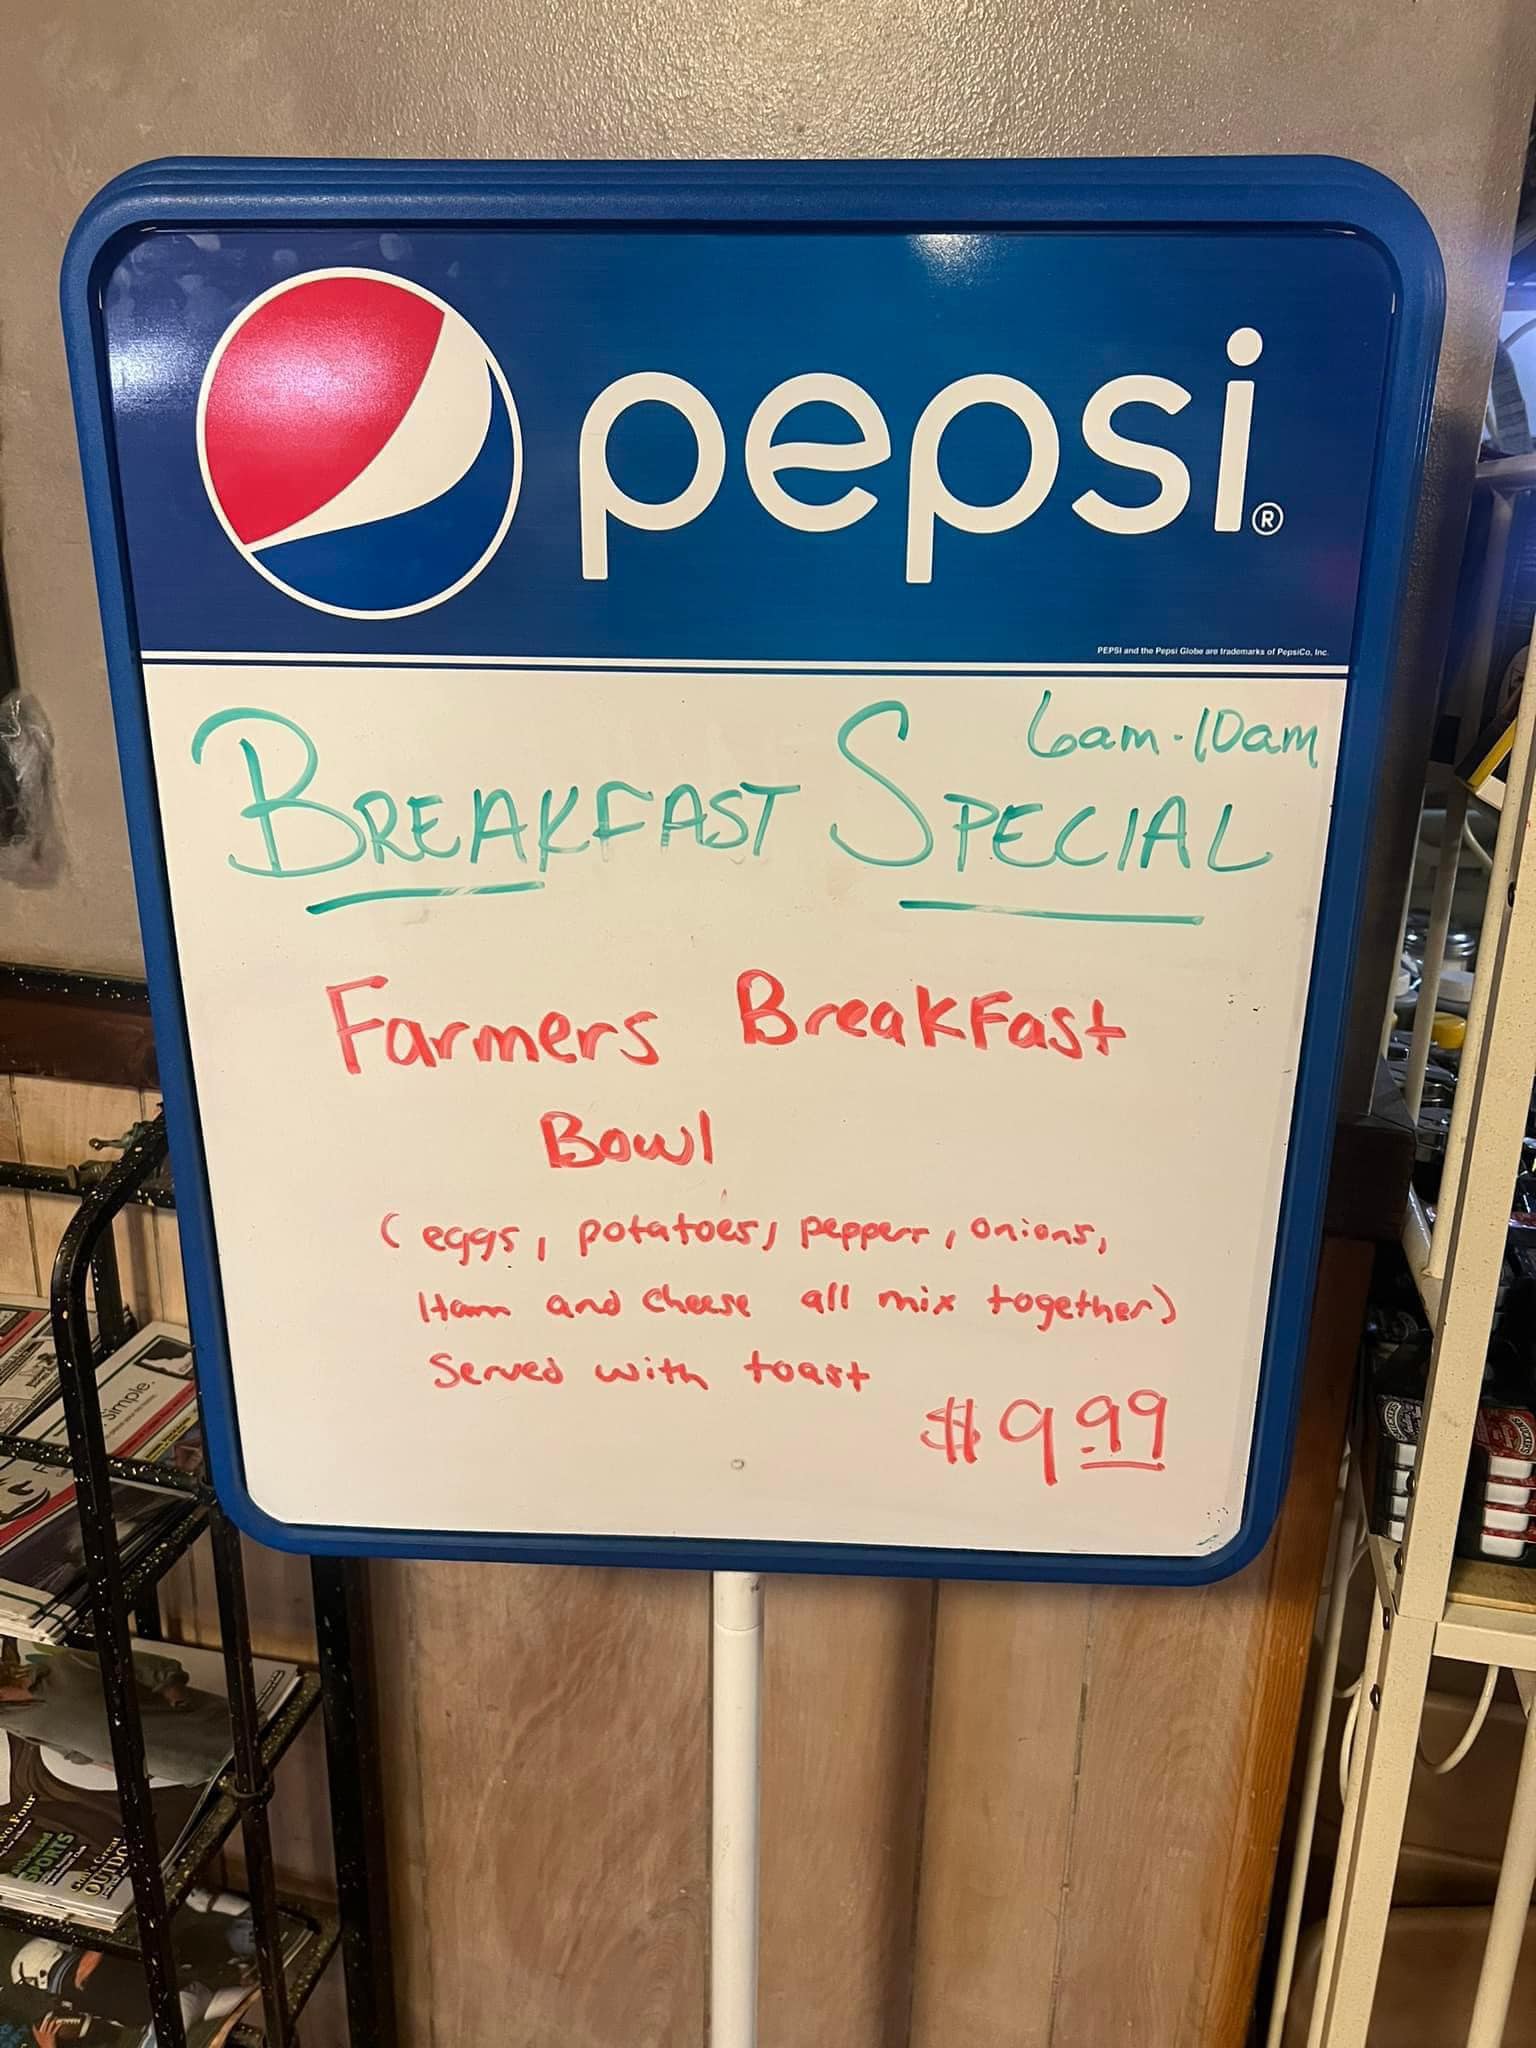 pepsi®
PEPSI and the Pepsi Globe are trademarks of PepsiCo, Inc.
6am-10am
BREAKFAST SPECIAL
Farmers BreakFast
Bowl
(eggs, potatoes, pepperr, onions,
Ham and cheese all mix together)
Served with toast
$9.99
Simple.
SPORTS
OUTDO